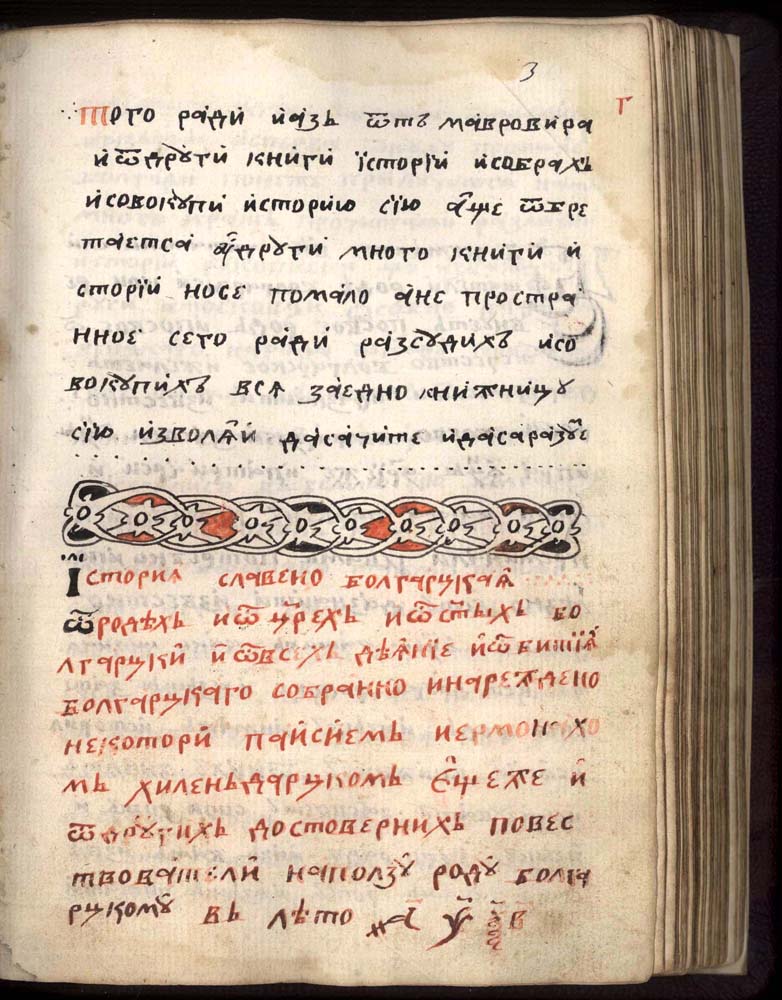 3
г
Того ради и азь ѿть мавровира
и ѿ други книги їсторїи и собрахъ
и совокупи историю сїю аще ѿбре
таетса а други много книги и
сторїи но се помало а не простра
нное сего ради разсудихъ и со
вокупихъ вся заедно книжницу
сїю изволяй да са чите и да са разуме
История славено болгарцкая
ѿ родѣхъ и ѿ црехъ и ѿ стыхъ бо
лгарцки и ѿ всехъ дѣяние и ѿ битиїя
болгарцкаго собранно и нареждено
некотори паисиемъ иермонахо
мъ хиленьдарцкомъ еще же и
ѿ другихъ достовернихъ повес
твователи на ползу роду болга
рцкому въ лѣто ҂а ѱ ѯ в